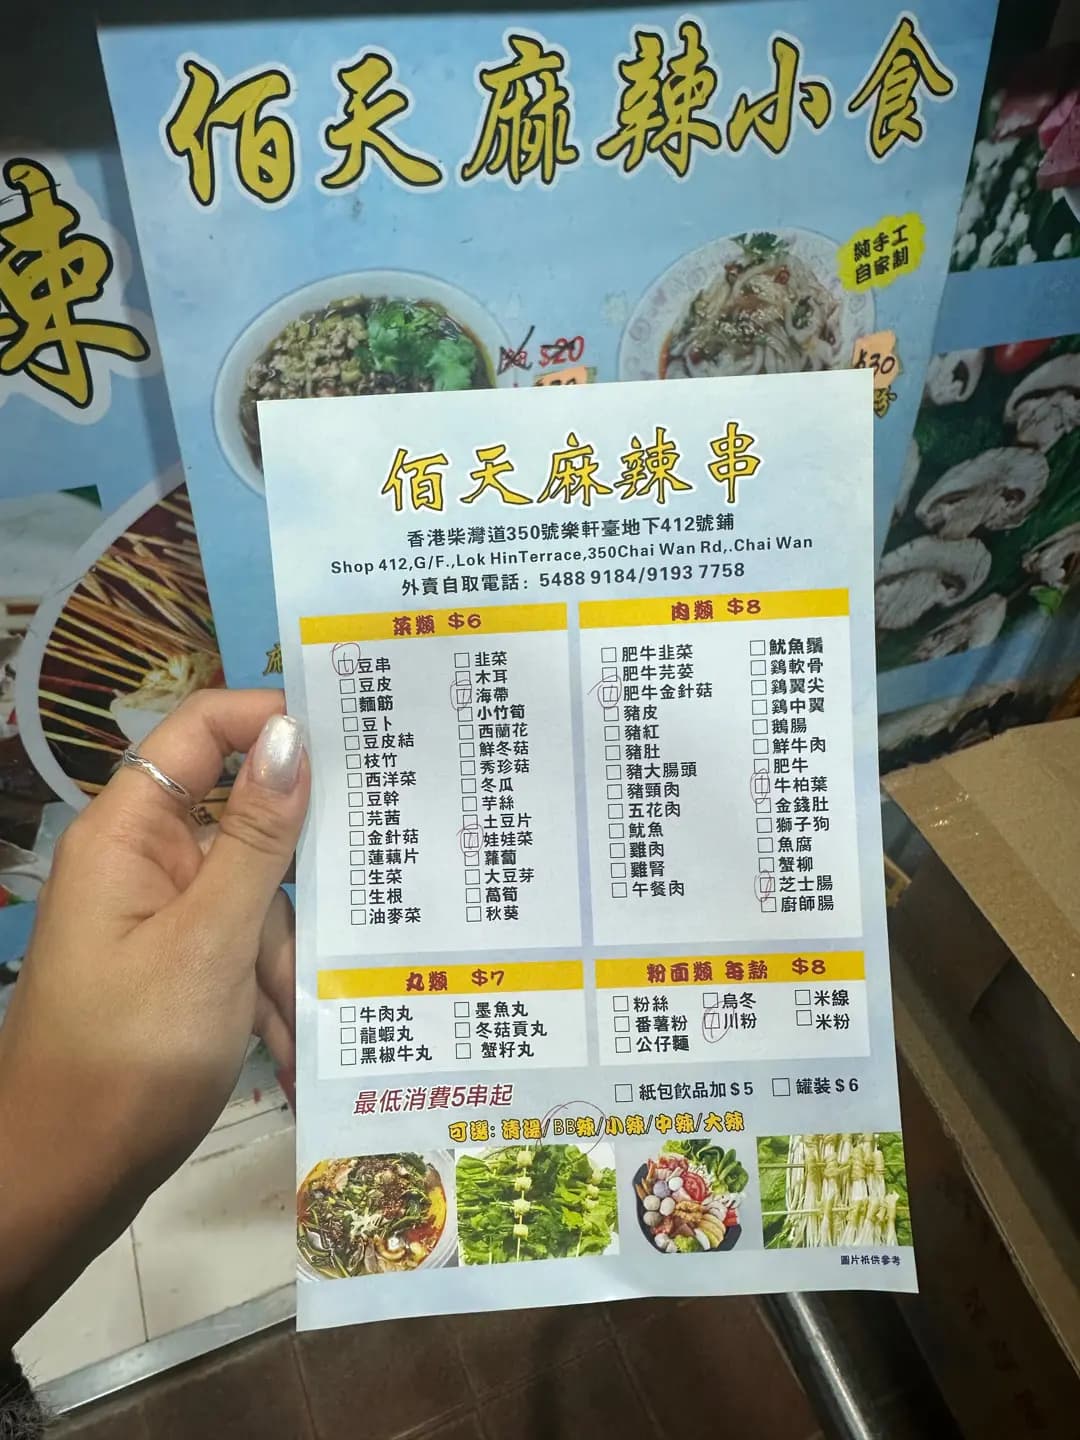 佰天麻辣小食
辣
純手工
自家制
$20
$30
佰天麻辣串
香港柴灣道350號樂軒臺地下412號鋪
Shop 412,G/F.,Lok HinTerrace,350Chai Wan Rd,.Chai Wan
外賣自取電話：5488 9184/9193 7758
菜類 $6
豆串
豆皮
麵筋
豆卜
豆皮結
枝竹
西洋菜
豆幹
芫茜
金針菇
蓮藕片
生菜
生根
油麥菜
韭菜
木耳
海帶
小竹筍
西蘭花
鮮冬菇
秀珍菇
冬瓜
芋絲
土豆片
娃娃菜
蘿蔔
大豆芽
萵筍
秋葵
肉類 $8
肥牛韭菜
肥牛芫荽
肥牛金針菇
豬皮
豬紅
豬肚
豬大腸頭
豬頸肉
五花肉
魷魚
雞肉
雞腎
午餐肉
魷魚鬚
鷄軟骨
鷄翼尖
鷄中翼
鵝腸
鮮牛肉
肥牛
牛柏葉
金錢肚
獅子狗
魚腐
蟹柳
芝士腸
廚師腸
丸類 $7
牛肉丸
龍蝦丸
黑椒牛丸
墨魚丸
冬菇貢丸
蟹籽丸
粉面類 每款 $8
粉絲
番薯粉
公仔麵
烏冬
川粉
米線
米粉
最低消費5串起
紙包飲品加$5 罐裝$6
可選：清湯/BB辣/小辣/中辣/大辣
圖片祇供參考